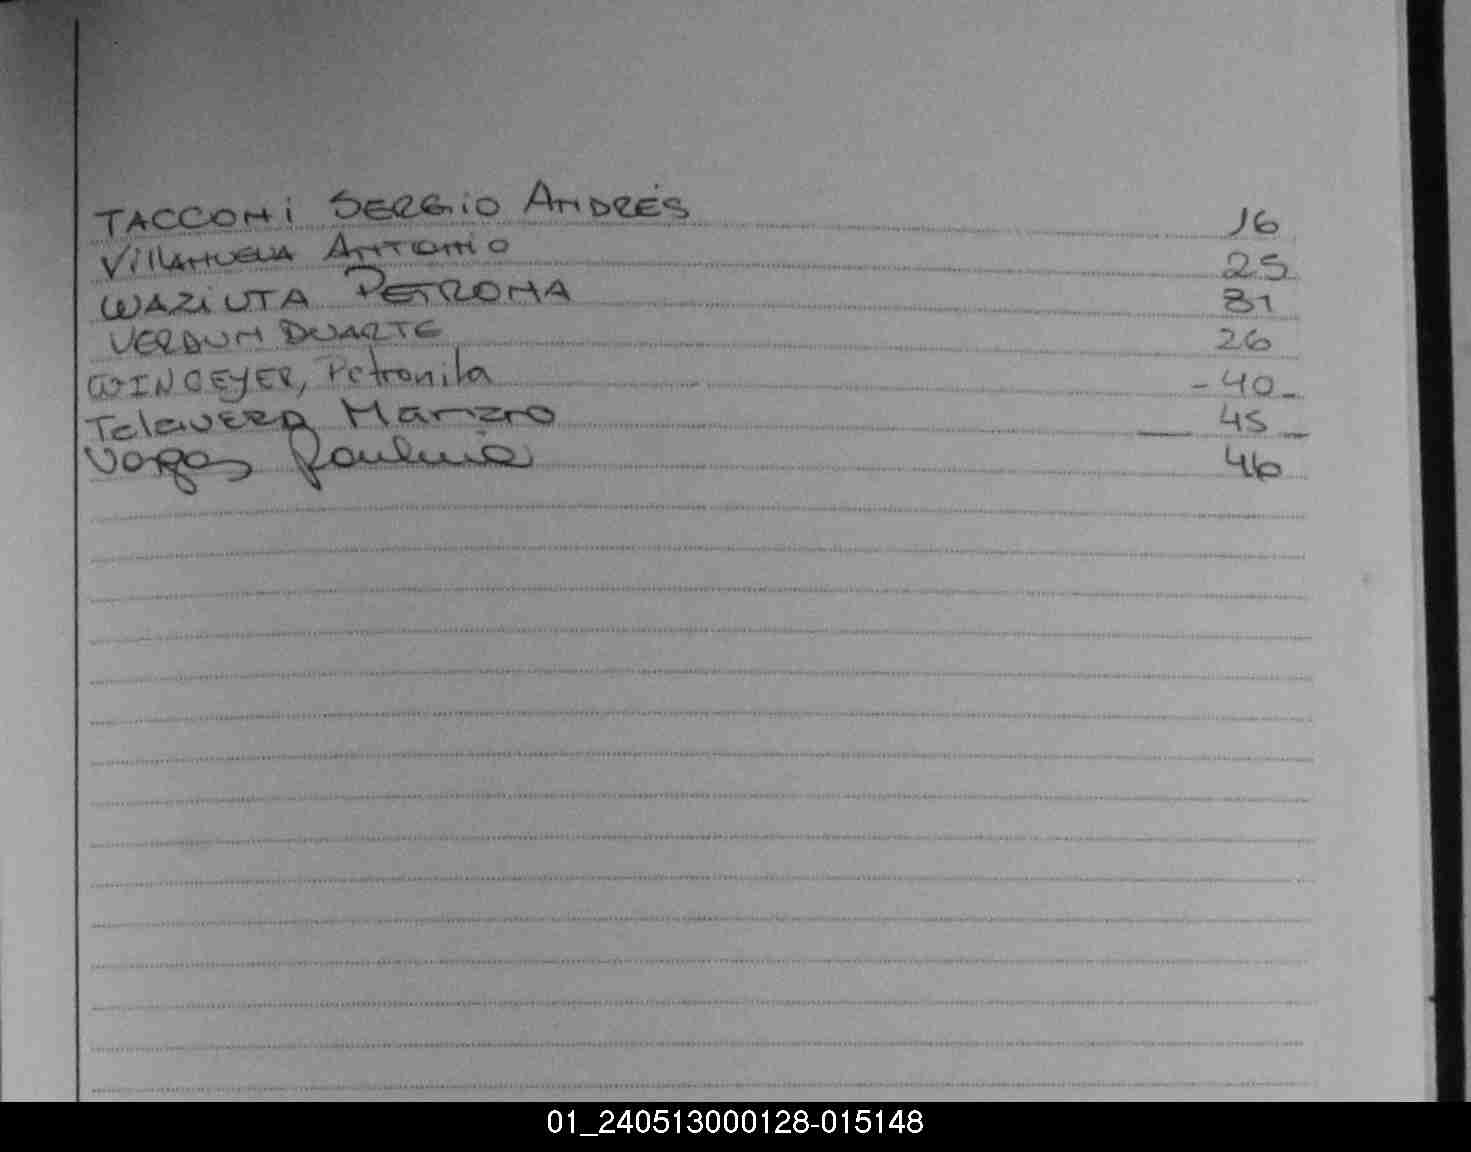 TACCONi SERGiO ANDRÉS 16
VillANUEVA ANTONiO 25
WAZiUTA PETRONA 31
VERDUN DUARTE 26
WINGEYER, Petronila - 40 -
Talavera 45
Vargas Paulina 46
01_240513000128-015148